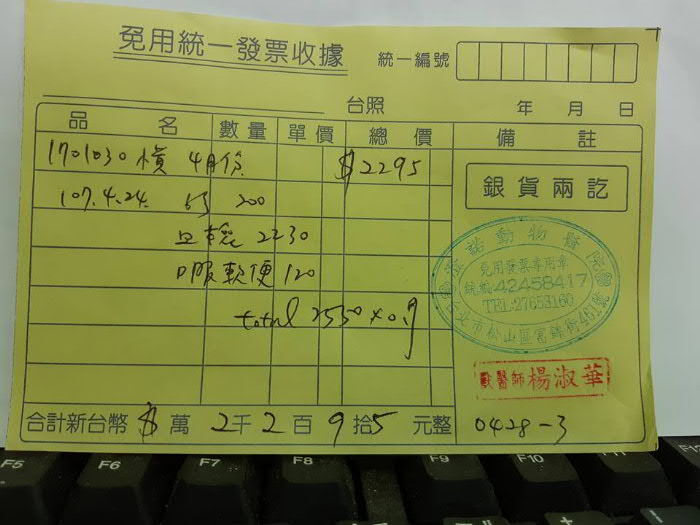 免用統一發票收據
統一編號
台照 年 月 日
品 名 數量 單價 總價 備註
1701030 橫 4月份 $2295
銀貨兩訖
107.4.24. 200
血檢 2230
口服軟便 120
total 2550 x 0.9
動物醫院
免用發票專用章
統編:42458417
TEL:27653160
北市松山區富錦街
獸醫師 楊淑華
合計新台幣 $ 萬 2千2百9拾5元整
0428-3
F5 F6 F7 F8 F9 F10 F11